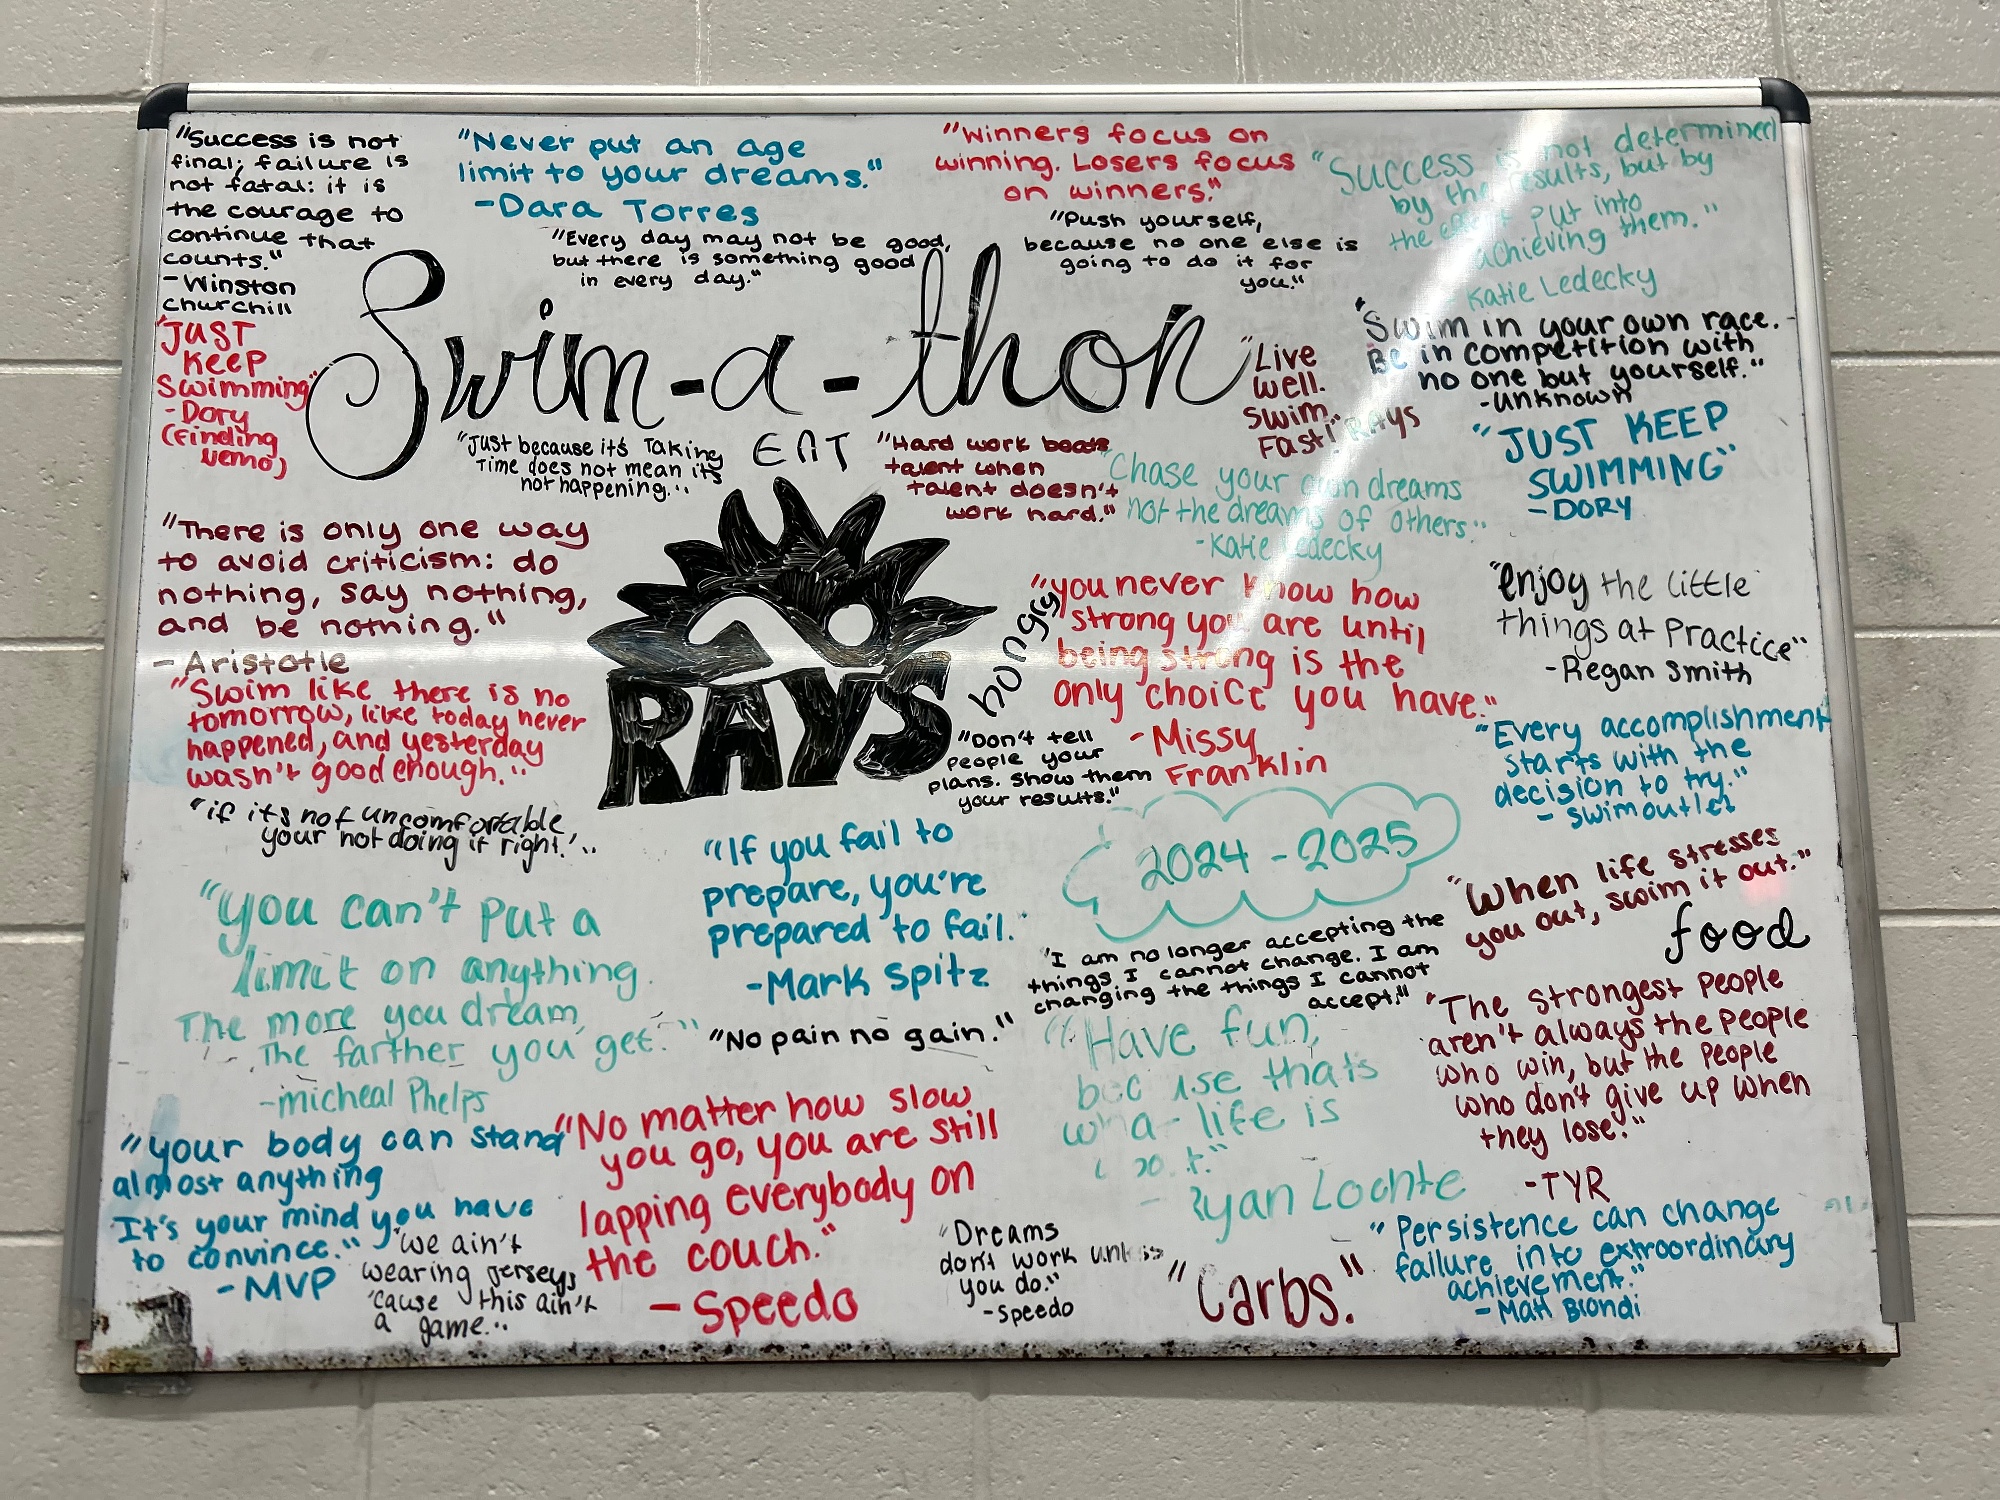 "Success is not
final; failure is
not fatal: it is
the courage to
continue that
counts."
-Winston
Churchill
"Never put an age
limit to your dreams."
-Dara Torres
"Every day may not be good,
but there is something good
in every day."
"Winners focus on
winning. Losers focus
on winners."
"Push yourself,
because no one else is
going to do it for
you."
"Success is not determined
by the results, but by
the effort put into
achieving them."
- Katie Ledecky
"JUST
KEEP
Swimming"
-Dory
(Finding
Nemo)
Swim-a-thon
"Live
well.
Swim
Fast!"
RAYS
"Swim in your own race.
Be in competition with
no one but yourself."
-unknown
"JUST KEEP
SWIMMING"
-DORY
"Just because it's Taking
Time does not mean it's
not happening."
EAT
"Hard work beats
talent when
talent doesn't
work hard."
"Chase your own dreams
not the dreams of others."
-Katie Ledecky
"There is only one way
to avoid criticism: do
nothing, say nothing,
and be nothing."
-Aristotle
RAYS
hongry
"you never know how
strong you are until
being strong is the
only choice you have."
-Missy
Franklin
"enjoy the little
things at Practice"
-Regan Smith
"Swim like there is no
tomorrow, like today never
happened, and yesterday
wasn't good enough."
"Don't tell
people your
plans. Show them
your results."
"Every accomplishment
starts with the
decision to try."
- swimoutlet
"if it's not uncomfortable,
your not doing it right."
"If you fail to
prepare, you're
prepared to fail."
-Mark Spitz
2024-2025
"When life stresses
you out, swim it out."
food
"you can't put a
limit on anything.
The more you dream,
The farther you get."
-micheal Phelps
"I am no longer accepting the
things I cannot change. I am
changing the things I cannot
accept."
"No pain no gain."
"Have fun,
because thats
what life is
-Ryan Lochte
"The strongest people
aren't always the people
who win, but the people
who don't give up when
they lose."
-TYR
"your body can stand
almost anything
It's your mind you have
to convince."
-MVP
"No matter how slow
you go, you are still
lapping everybody on
the couch."
-Speedo
"we ain't
wearing jerseys
'cause this ain't
a game."
"Dreams
don't work unless
you do."
-speedo
"Carbs."
"Persistence can change
failure into extroordinary
achievement."
-Matt Biondi